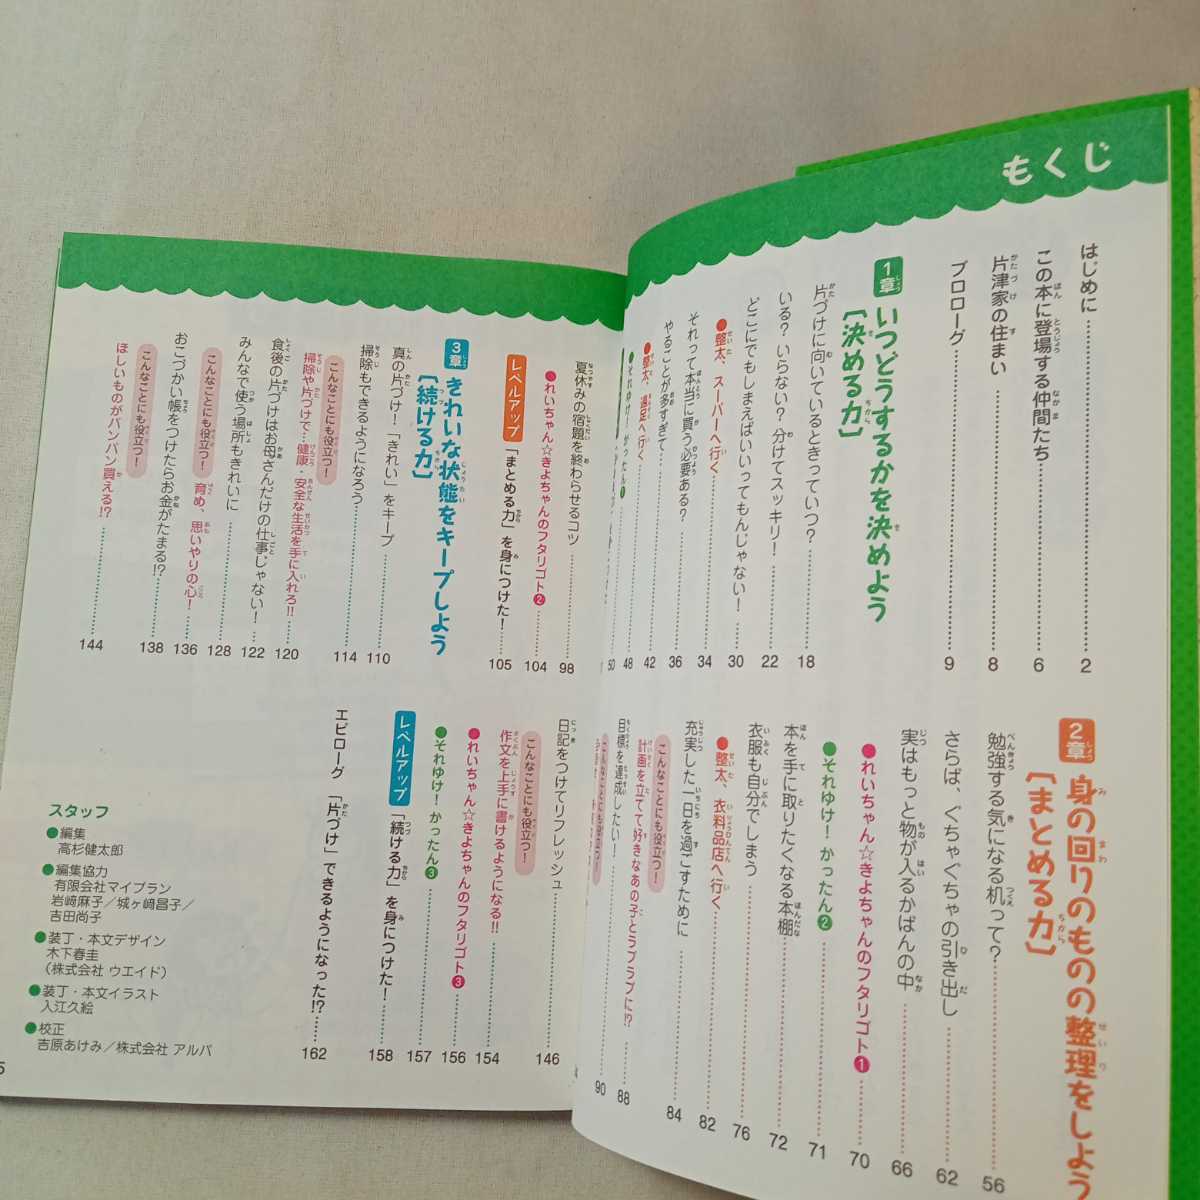 もくじ
はじめに 2
この本に登場する仲間たち 6
片津家の住まい 8
プロローグ 9
1章 いつどうするかを決めよう
［決める力］
片づけに向いているときっていつ？ 18
いる？いらない？分けてスッキリ！ 22
どこにでもしまえばいいってもんじゃない！ 30
●整太、スーパーへ行く 34
それって本当に買う必要ある？ 36
やることが多すぎて 42
●整太、遠足へ行く 48
●それゆけ！かったん❶ 50
2章 身の回りのものの整理をしよう
［まとめる力］
勉強する気になる机って？ 56
さらば、ぐちゃぐちゃの引き出し 62
実はもっと物が入るかばんの中 66
●れいちゃん☆きよちゃんのフタリゴト❶ 70
●それゆけ！かったん❷ 71
本を手に取りたくなる本棚 72
衣服も自分でしまう 76
●整太、衣料品店へ行く 82
充実した一日を過ごすために 84
こんなことにも役立つ！
計画を立てて好きなあの子とラブラブに!? 88
目標を達成したい！ 90
夏休みの宿題を終わらせるコツ 98
●れいちゃん☆きよちゃんのフタリゴト❷ 104
レベルアップ 「まとめる力」を身につけた！ 105
3章 きれいな状態をキープしよう
［続ける力］
真の片づけ！「きれい」をキープ 110
掃除もできるようになろう 114
こんなことにも役立つ！
掃除や片づけで…健康・安全な生活を手に入れろ!! 120
食後の片づけはお母さんだけの仕事じゃない！ 122
みんなで使う場所もきれいに 128
こんなことにも役立つ！ 育め、思いやりの心！ 136
おこづかい帳をつけたらお金がたまる!? 138
こんなことにも役立つ！
ほしいものがバンバン買える!? 144
日記をつけてリフレッシュ 146
こんなことにも役立つ！
作文を上手に書けるようになる!! 154
●れいちゃん☆きよちゃんのフタリゴト❸ 156
●それゆけ！かったん❸ 157
レベルアップ 「続ける力」を身につけた！ 158
エピローグ 「片づけ」できるようになった!? 162
スタッフ
●編集
高杉健太郎
●編集協力
有限会社マイプラン
岩﨑麻子／城ヶ﨑昌子／
吉田尚子
●装丁・本文デザイン
木下春圭
（株式会社 ウエイド）
●装丁・本文イラスト
入江久絵
●校正
吉原あけみ／株式会社 アルパ
5